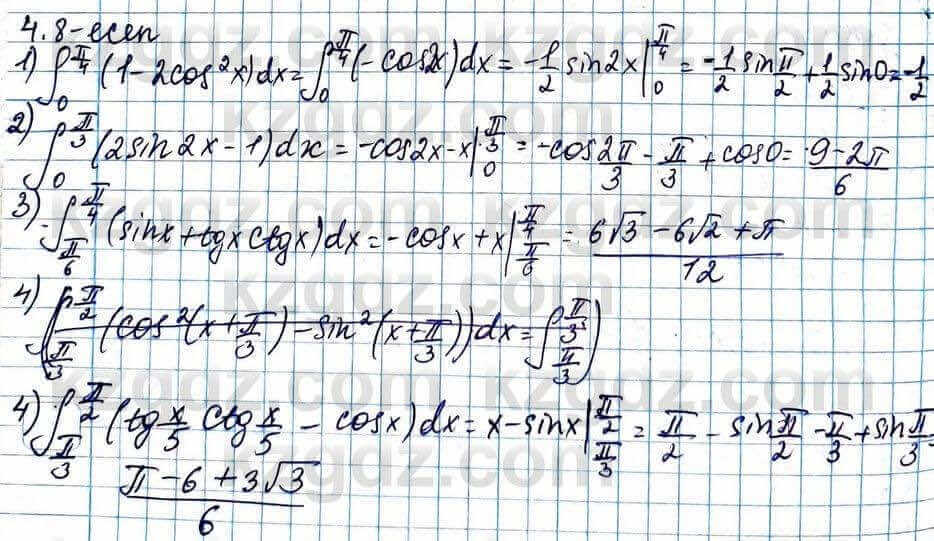 4.8-есеп
1) ∫₀^{π/4} (1-2cos²x)dx = ∫₀^{π/4} (-cos2x)dx = -1/2 sin2x |₀^{π/4} = -1/2 sin π/2 + 1/2 sin0 = -1/2
2) ∫₀^{π/3} (2sin2x-1)dx = -cos2x-x |₀^{π/3} = -cos 2π/3 - π/3 + cos0 = 9-2π/6
3) -∫_{π/6}^{π/4} (sinx+tgxctgx)dx = -cosx+x |_{π/6}^{π/4} = 6√3-6√2+π/12
4) (∫_{π/3}^{π/2} (cos²(x+π/3)-sin²(x+π/3))dx = ∫_{π/3}^{π/3})
4) ∫_{π/3}^{π/2} (tg x/5 ctg x/5 - cosx)dx = x-sinx |_{π/3}^{π/2} = π/2 - sin π/2 - π/3 + sin π/3
π-6+3√3/6
kzgdz.com